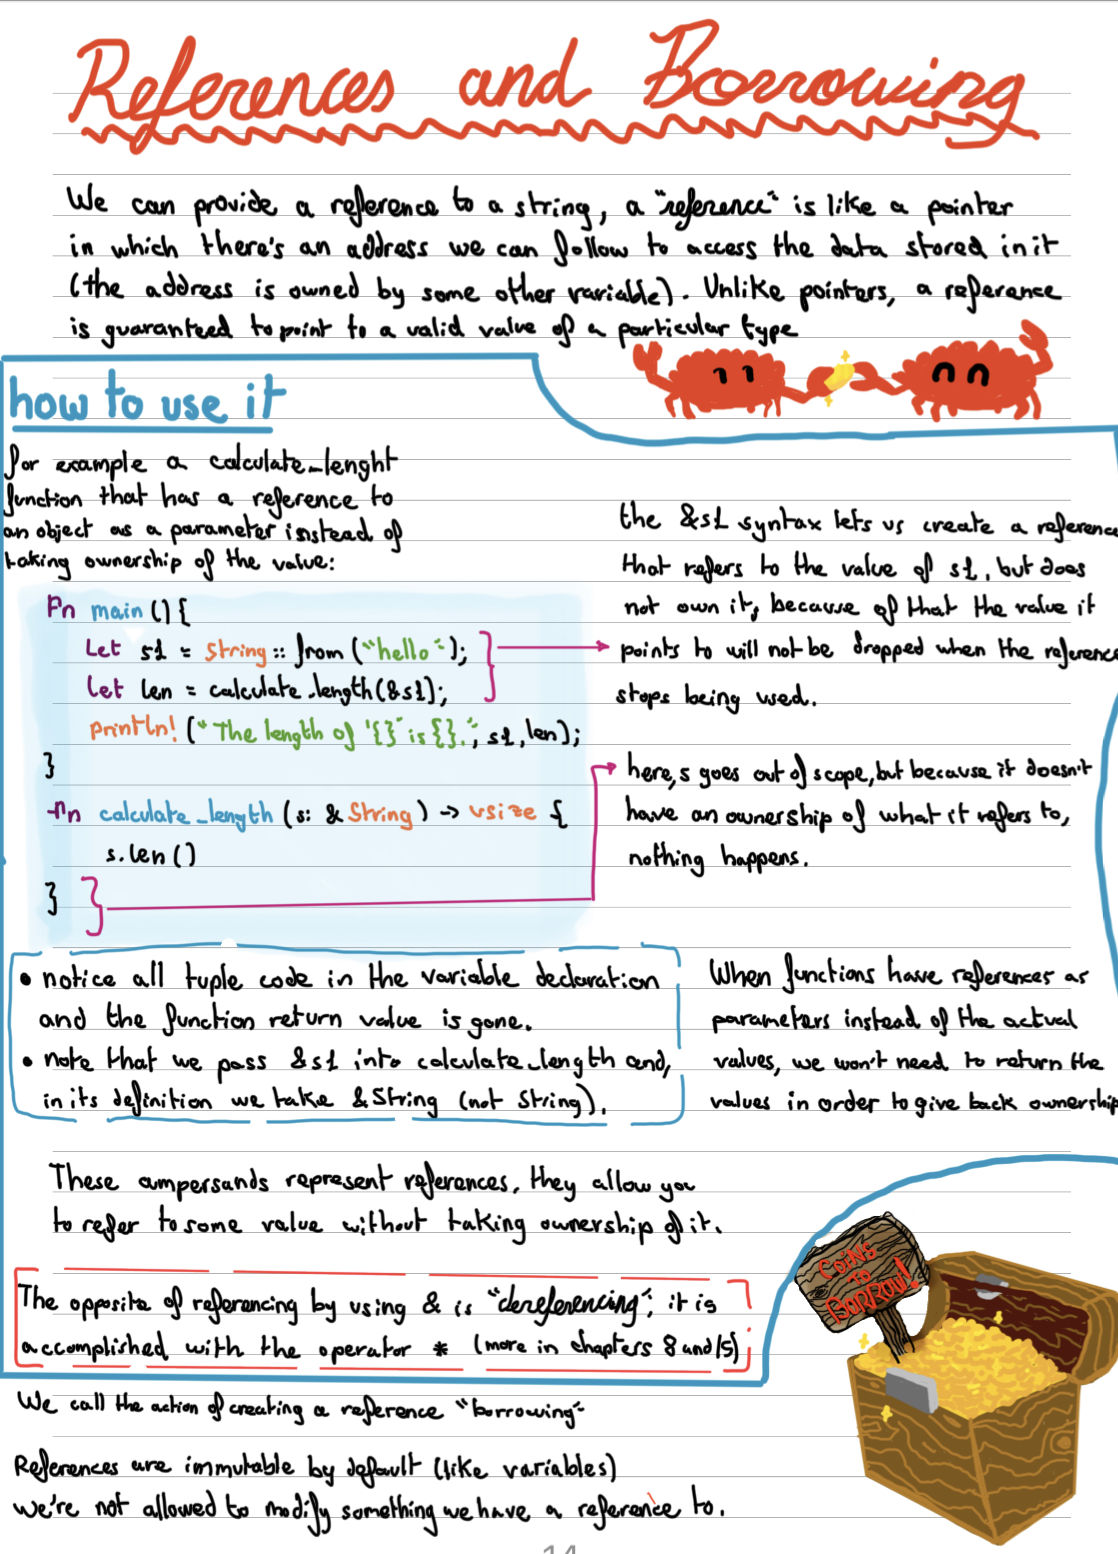 References and Borrowing
We can provide a reference to a string, a "reference" is like a pointer
in which there's an address we can follow to access the data stored in it
(the address is owned by some other variable). Unlike pointers, a reference
is guaranteed to point to a valid value of a particular type
how to use it
for example a calculate_lenght
function that has a reference to
an object as a parameter instead of
taking ownership of the value:
fn main () {
let s1 = String :: from ("hello");
let len = calculate_length(&s1);
println! ("The length of '{}' is {}.", s1, len);
}
fn calculate_length (s: & String) -> usize {
s.len ()
}
the &s1 syntax lets us create a reference
that refers to the value of s1, but does
not own it, because of that the value it
points to will not be dropped when the reference
stops being used.
here, s goes out of scope, but because it doesn't
have an ownership of what it refers to,
nothing happens.
• notice all tuple code in the variable declaration
and the function return value is gone.
• note that we pass &s1 into calculate_length and,
in its definition we take &String (not String).
When functions have references as
parameters instead of the actual
values, we won't need to return the
values in order to give back ownership
These ampersands represent references, they allow you
to refer to some value without taking ownership of it.
The opposite of referencing by using & is "dereferencing", it is
accomplished with the operator * (more in chapters 8 and 15)
COINS
TO
BORROW!
We call the action of creating a reference "borrowing"
References are immutable by default (like variables)
we're not allowed to modify something we have a reference to.
14